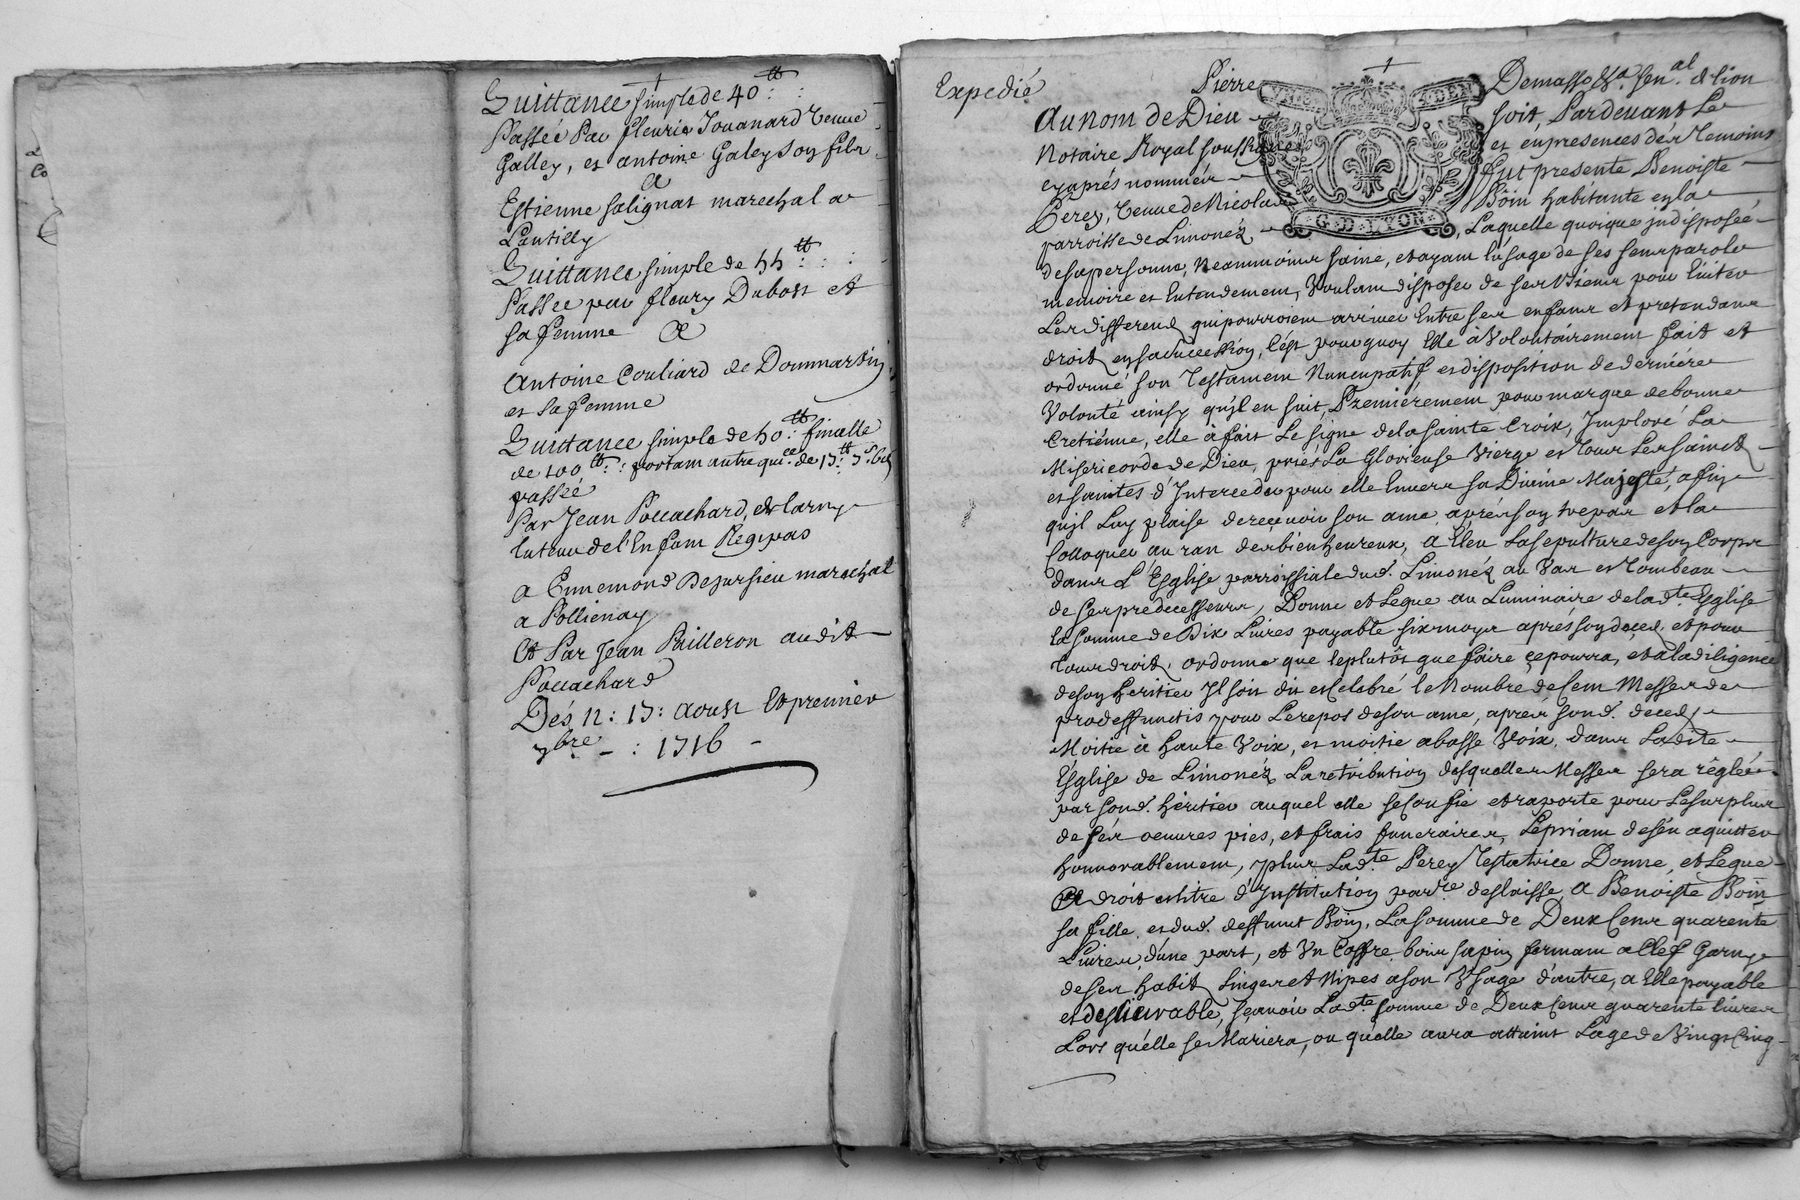 Quittance simple de 40 tt
Passée Par fleurie Jouanard Veuve
Galley, et antoine Galey son fils
A
Estienne salignat marechal a
Lantilly
Quittance simple de 55 tt
Passee par fleury Dubost et
sa femme A
Antoine Couliard de Dommartin
et sa femme
Quittance simple de 50 tt finalle
de 100 tt portant autre quice de 15 tt 5 s
passéé
Par Jean Poccachard, et larny
tuteur de l'Enfant Régipas
a Ennemond Dejursieu marechal
a Pollienay
Et Par Jean Pailleron audit
Poccachard
Dés 12: 15: Aoust Et premier
7bre - : 1716 -
Expedié
Pierre Demasso &a. sen.al d Lion
Au nom de Dieu soit Pardevant Le
Notaire Royal soussigné et en presences dés Temoins
cy aprés nommés fut presente Benoiste
Perey, Veuve de Nicolas Boin habitante en la
parroisse de Limonéz, Laquelle quoique indisposéé
G. D. LYON
de sa personne, Neanmoins saine, et ayant l'usage de ses sens parole
memoire et Entendement, Voulant disposer de ses Biens pour Eviter
Les differend qui pourroient arriver Entre ses enfans et pretendans
droit en sa succession, C'est pourquoy Elle à Volontairement fait et
ordonné son Testament Nuncupatif et disposition de derniére
Volonté ainsy qu'jl en suit, Premiérement pour marque de bonne
Cretiénne, elle à fait Le signe de la sainte Croix, Imploré La
Misericorde de Dieu, priés La Glorieuse Vierge et Tous Les saincts
et saintes d'Interceder pour elle Envers sa Divine Majesté, affin
qu'jl Luy plaise de recevoir son ame aprés son trepas et la
Colloquer au ran des bienheureux, a Eleu La sepulture de son Corps
dans L'Esglise parroissiale dud. Limonéz au Vas et Tombeau
de ses predecesseurs, Donne et Legue au Luminaire de lad.te Esglise
la somme de Dix Livres payable six moys aprés son decéd. et pour
tous droit, ordonne que le plutôt que faire ce pourra, et a la diligence
de son heritier Il soit dit et Celebré le Nombre de Cent Messes de
prodeffunctis pour Le repos de son ame, aprés sond. decéd
Moitié à haute Voix, et moitié a basse Voix, dans Ladite
Ésglise de Limonéz La retribution desquelles Messes sera réglée
par sond. héritier auquel elle se Confie et raporte pour Le surplus
de sés oeuvres pies, et frais funeraires, Le priant de s'én aquitter
honnorablement, plus Lad.te Perey Testatrice Donne, et Legue
Et droit et titre d'Institution par.re deslaisse A Benoiste Boin
sa fille, et dud. deffunt Boin, La somme de Deux Cens quarente
Livres, d'une part, et Vn Coffre bois sapin fermant a Clef Garny
de ses habit Linges et Nipes a son Vsage d'autre, a Elle payable
et deslivrable, sçavoir Lad.te somme de Deux Cens quarente Livres
Lors qu'élle se Mariera, ou qu'elle aura attaint L'age de Vingt Cinq